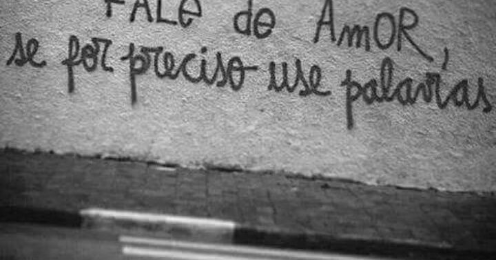 FALE de AMOR,
se for preciso use palavras